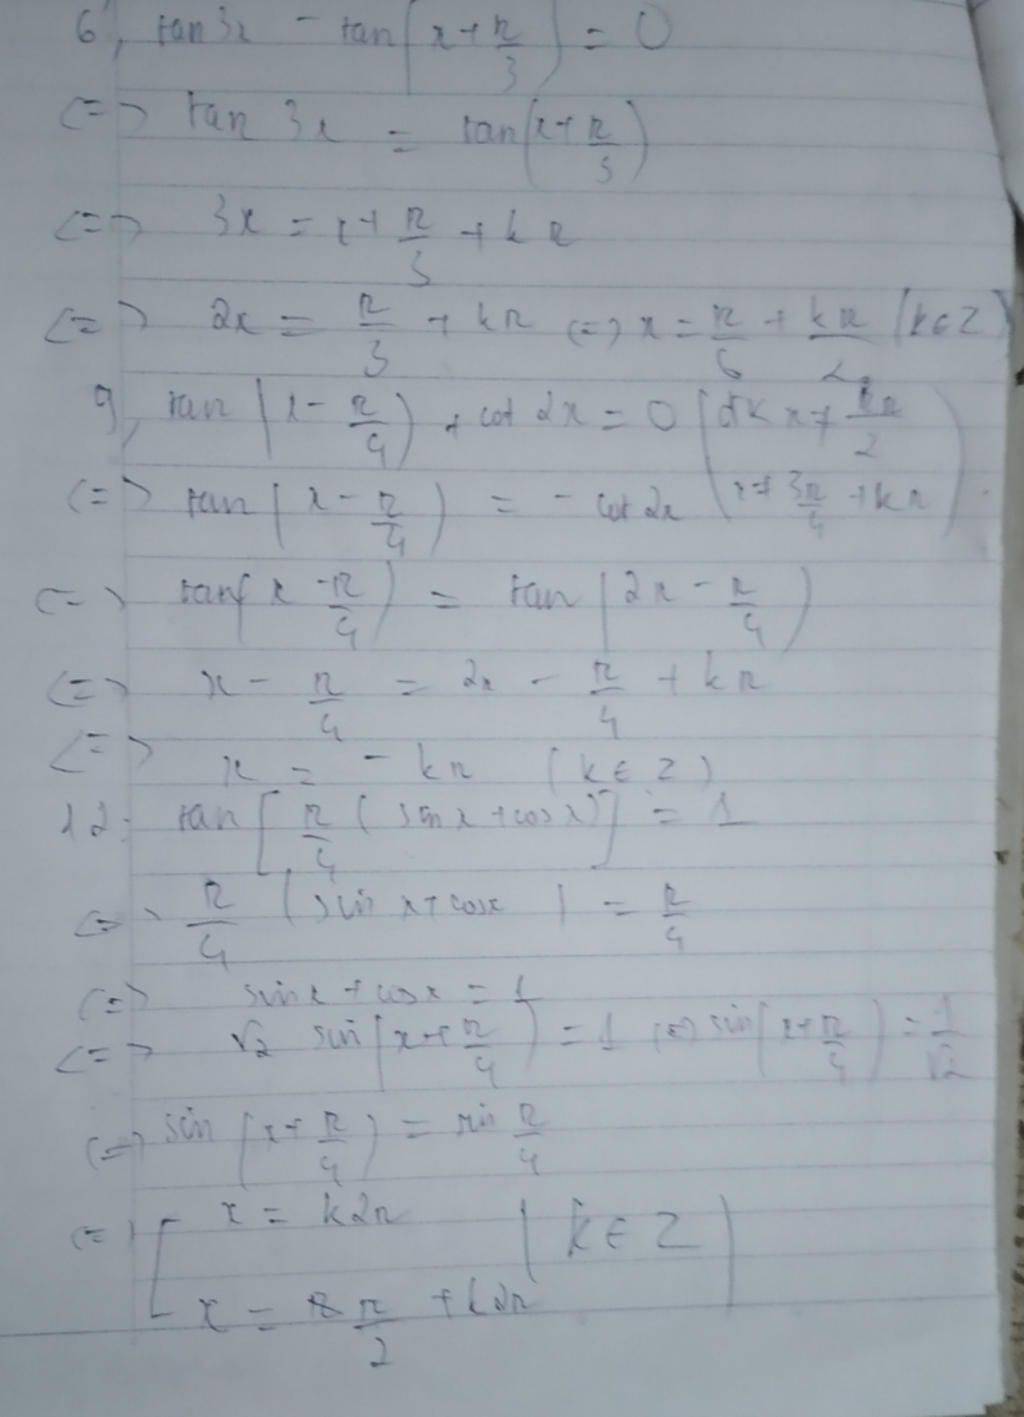 6, tan 3x - tan(x + π/3) = 0
<=> tan 3x = tan(x + π/3)
<=> 3x = x + π/3 + kπ
<=> 2x = π/3 + kπ <=> x = π/6 + kπ/2 (k ∈ Z)
9, tan(x - π/4) + cot 2x = 0 (đk x ≠ kπ/2
<=> tan(x - π/4) = - cot 2x x ≠ 3π/4 + kπ)
<=> tan(x - π/4) = tan(2x - π/4)
<=> x - π/4 = 2x - π/4 + kπ
<=> x = - kπ (k ∈ Z)
12: tan[π/4 (sin x + cos x)] = 1
<=> π/4 (sin x + cos x) = π/4
<=> sin x + cos x = 1
<=> √2 sin(x + π/4) = 1 <=> sin(x + π/4) = 1/√2
<=> sin(x + π/4) = sin π/4
<=> [ x = k2π (k ∈ Z)
x = π/2 + k2π